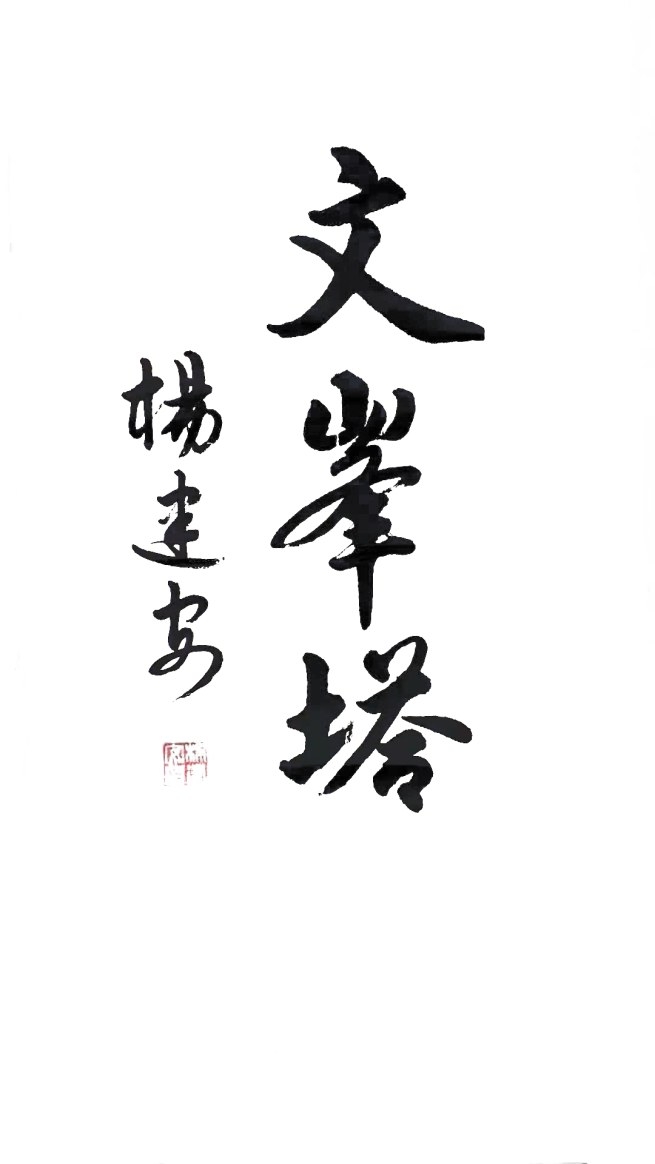 文峯塔
楊建安